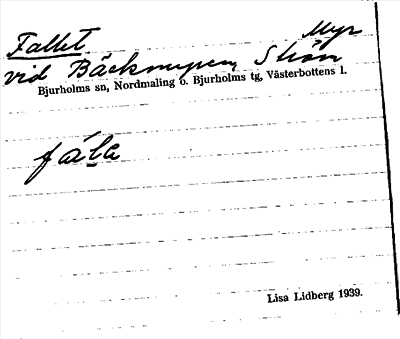 Fallet Myr
vid Bäckmyren, Strön
Bjurholms sn, Nordmaling o. Bjurholms tg, Västerbottens l.
fála
Lisa Lidberg 1939.